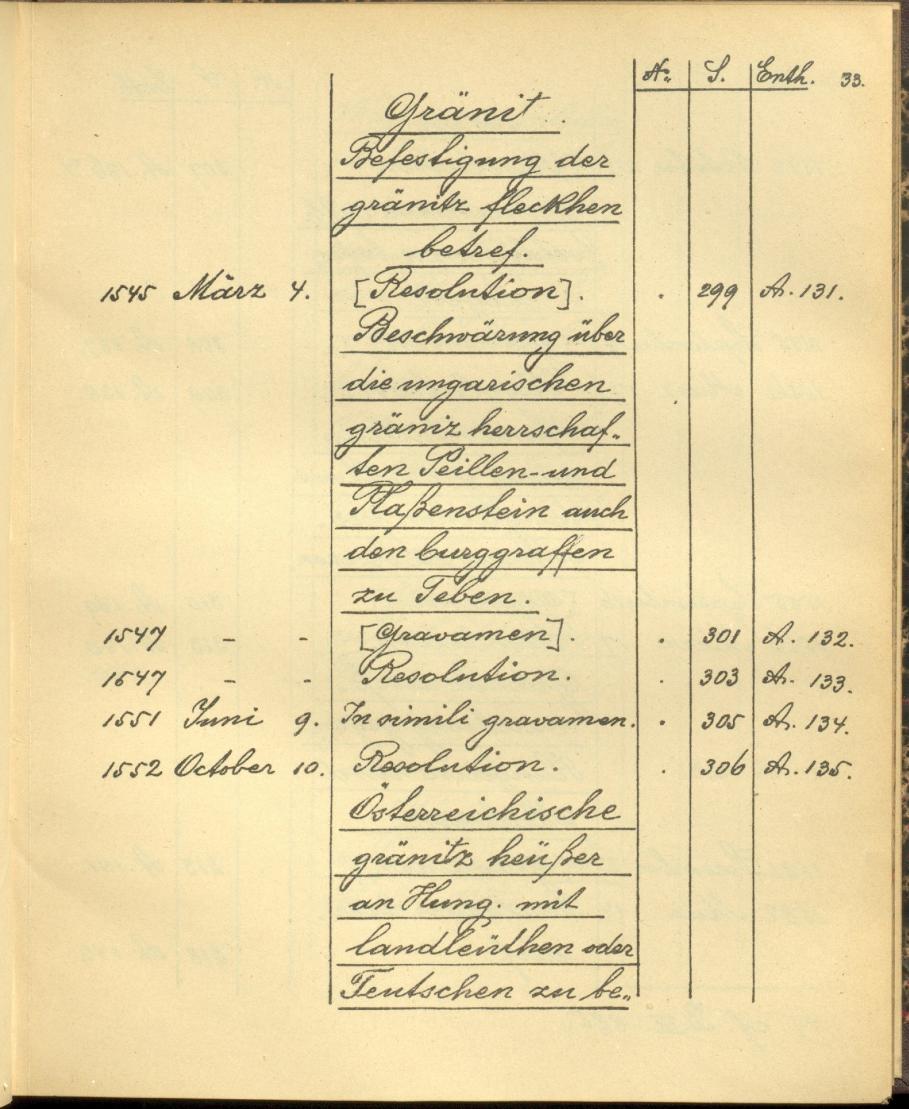 N: S. Enth. 33.
Gränit.
Befestigung der
gränitz fleckhen
betref.
1545 März 4. [Resolution]. . 299 A. 131.
Beschwärung über
die ungarischen
gräniz herrschaf„
ten Peillen-und
Plaßenstein auch
den burggraffen
zu Teben.
1547 - - [Gravamen]. . 301 A. 132.
1547 - - Resolution. . 303 A. 133.
1551 Juni 9. In simili gravamen. . 305 A. 134.
1552 October 10. Resolution. . 306 A. 135.
Österreichische
gränitz heüßer
an Hung. mit
landleüthen oder
Teutschen zu be„